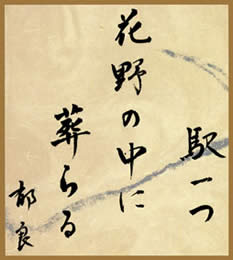 駅一つ
花野の中に
葬らる
郁良